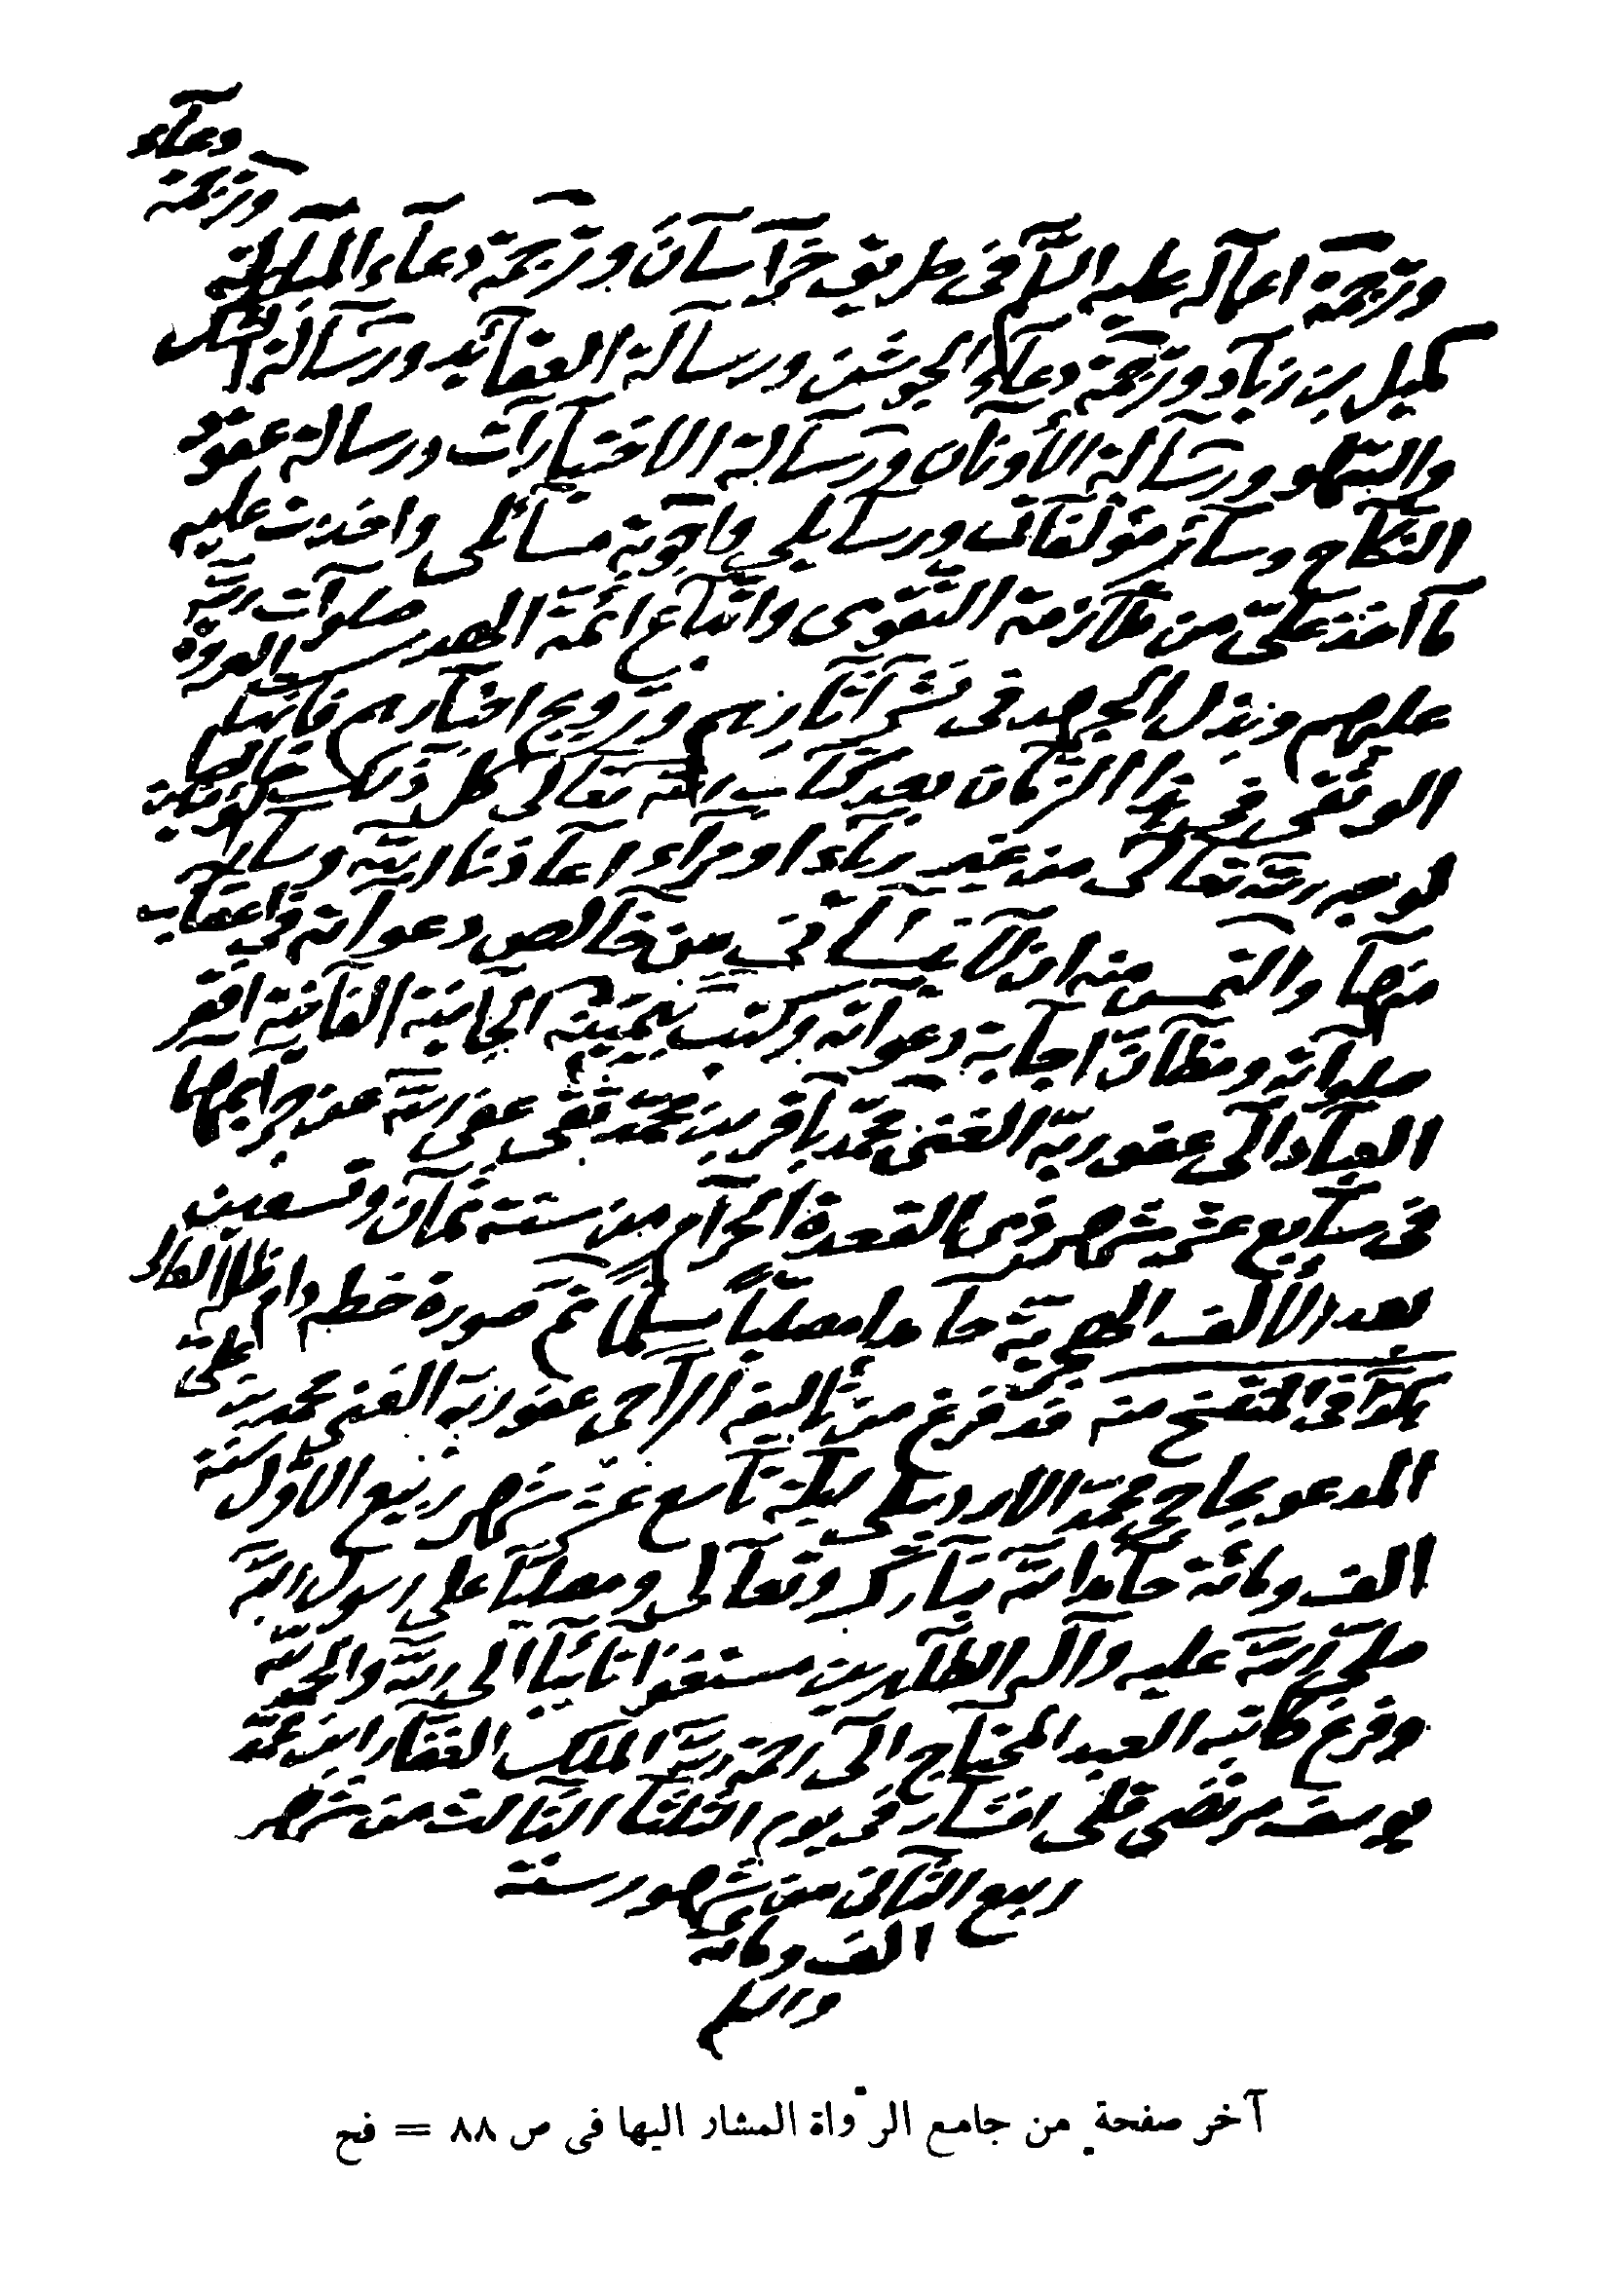 وترجمة اعماله عليه السلم فى طريق خراسان وترجمة دعاء المباهلة وترجمة دعاء
كميل بن زياد وترجمة دعاء الجوشن ورسالة العقائد ورسالة الشك
والسهو ورسالة الأوزان ورسالة الاختيارات ورسالة عقود
النكاح وسائر مؤلفاتى ورسايلى واجوبة مسائلى واخذت عليه
ما اخذ علىّ من ملازمة التقوى واتباع ائمة الهدى صلوات الله
عليهم وبذل الجهد فى نشر آثارهم وترويج اخبارهم فانها العروة
الوثقى فى هذا الزمان بعد كتاب الله تعالى كل ذلك خالصا
لوجه الله تعالى من غير رياء او مراء اعاذنا الله وساير المؤمنين
منهما والتمس منه ان لا ينسانى من خالص دعواته فى اعقاب
صلواته ومظان اجابة دعواته وكتب بيمينه الجانية الفانية افقر
العباد الى عفو ربه الغنى محمد باقر بن محمد تقى عفى الله عن جرايمهما
فى سابع عشر شهر ذى القعدة الحرام من سنة ثمان وتسعين
بعد الألف الهجرية حامدا مصليا مسلما تم صورة خطه دام ظله العالى
هكذا فى المنتسخ منه قد فرغ من تأليفه الراجى عفو ربه الغنى محمد بن على
المدعو بحاجى محمد الاردبيلى ليلة تاسع عشر شهر ربيع الاول سنة
الف ومائة حامدا لله تبارك وتعالى ومصليا على رسول الله
صلى الله عليه وآله الطاهرين مستغفرا تائبا الى الله والحمد لله
وفرغ كاتبه العبد المحتاج الى رحمة الله الملك الغفار ابن محمد
يوسف مرتضى قلى افشار فى يوم الثلثا الثالث من شهر
ربيع الثانى من شهور سنة
الف ومائة
والسلم
آخر صفحة من جامع الرواة المشار اليها فى ص ٨٨ = فح